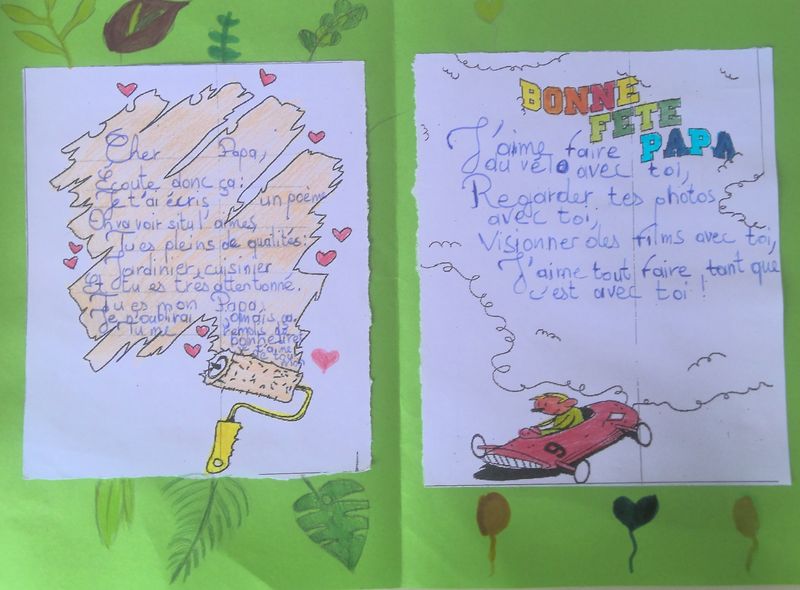 Cher Papa,
Ecoute donc ça:
Je t'ai écris un poème
On va voir si tu l'aimes.
Tu es pleins de qualités:
Jardinier, cuisinier
Et tu es très attentonné.
Tu es mon Papa,
Je n'oublirai jamais ça.
Tu me remplis de
bonheur et
je t'aime
BONNE
FETE
PAPA
J'aime faire
du vélo avec toi,
Regarder tes photos
avec toi,
Visionner des films avec toi,
J'aime tout faire tant que
c'est avec toi!
9